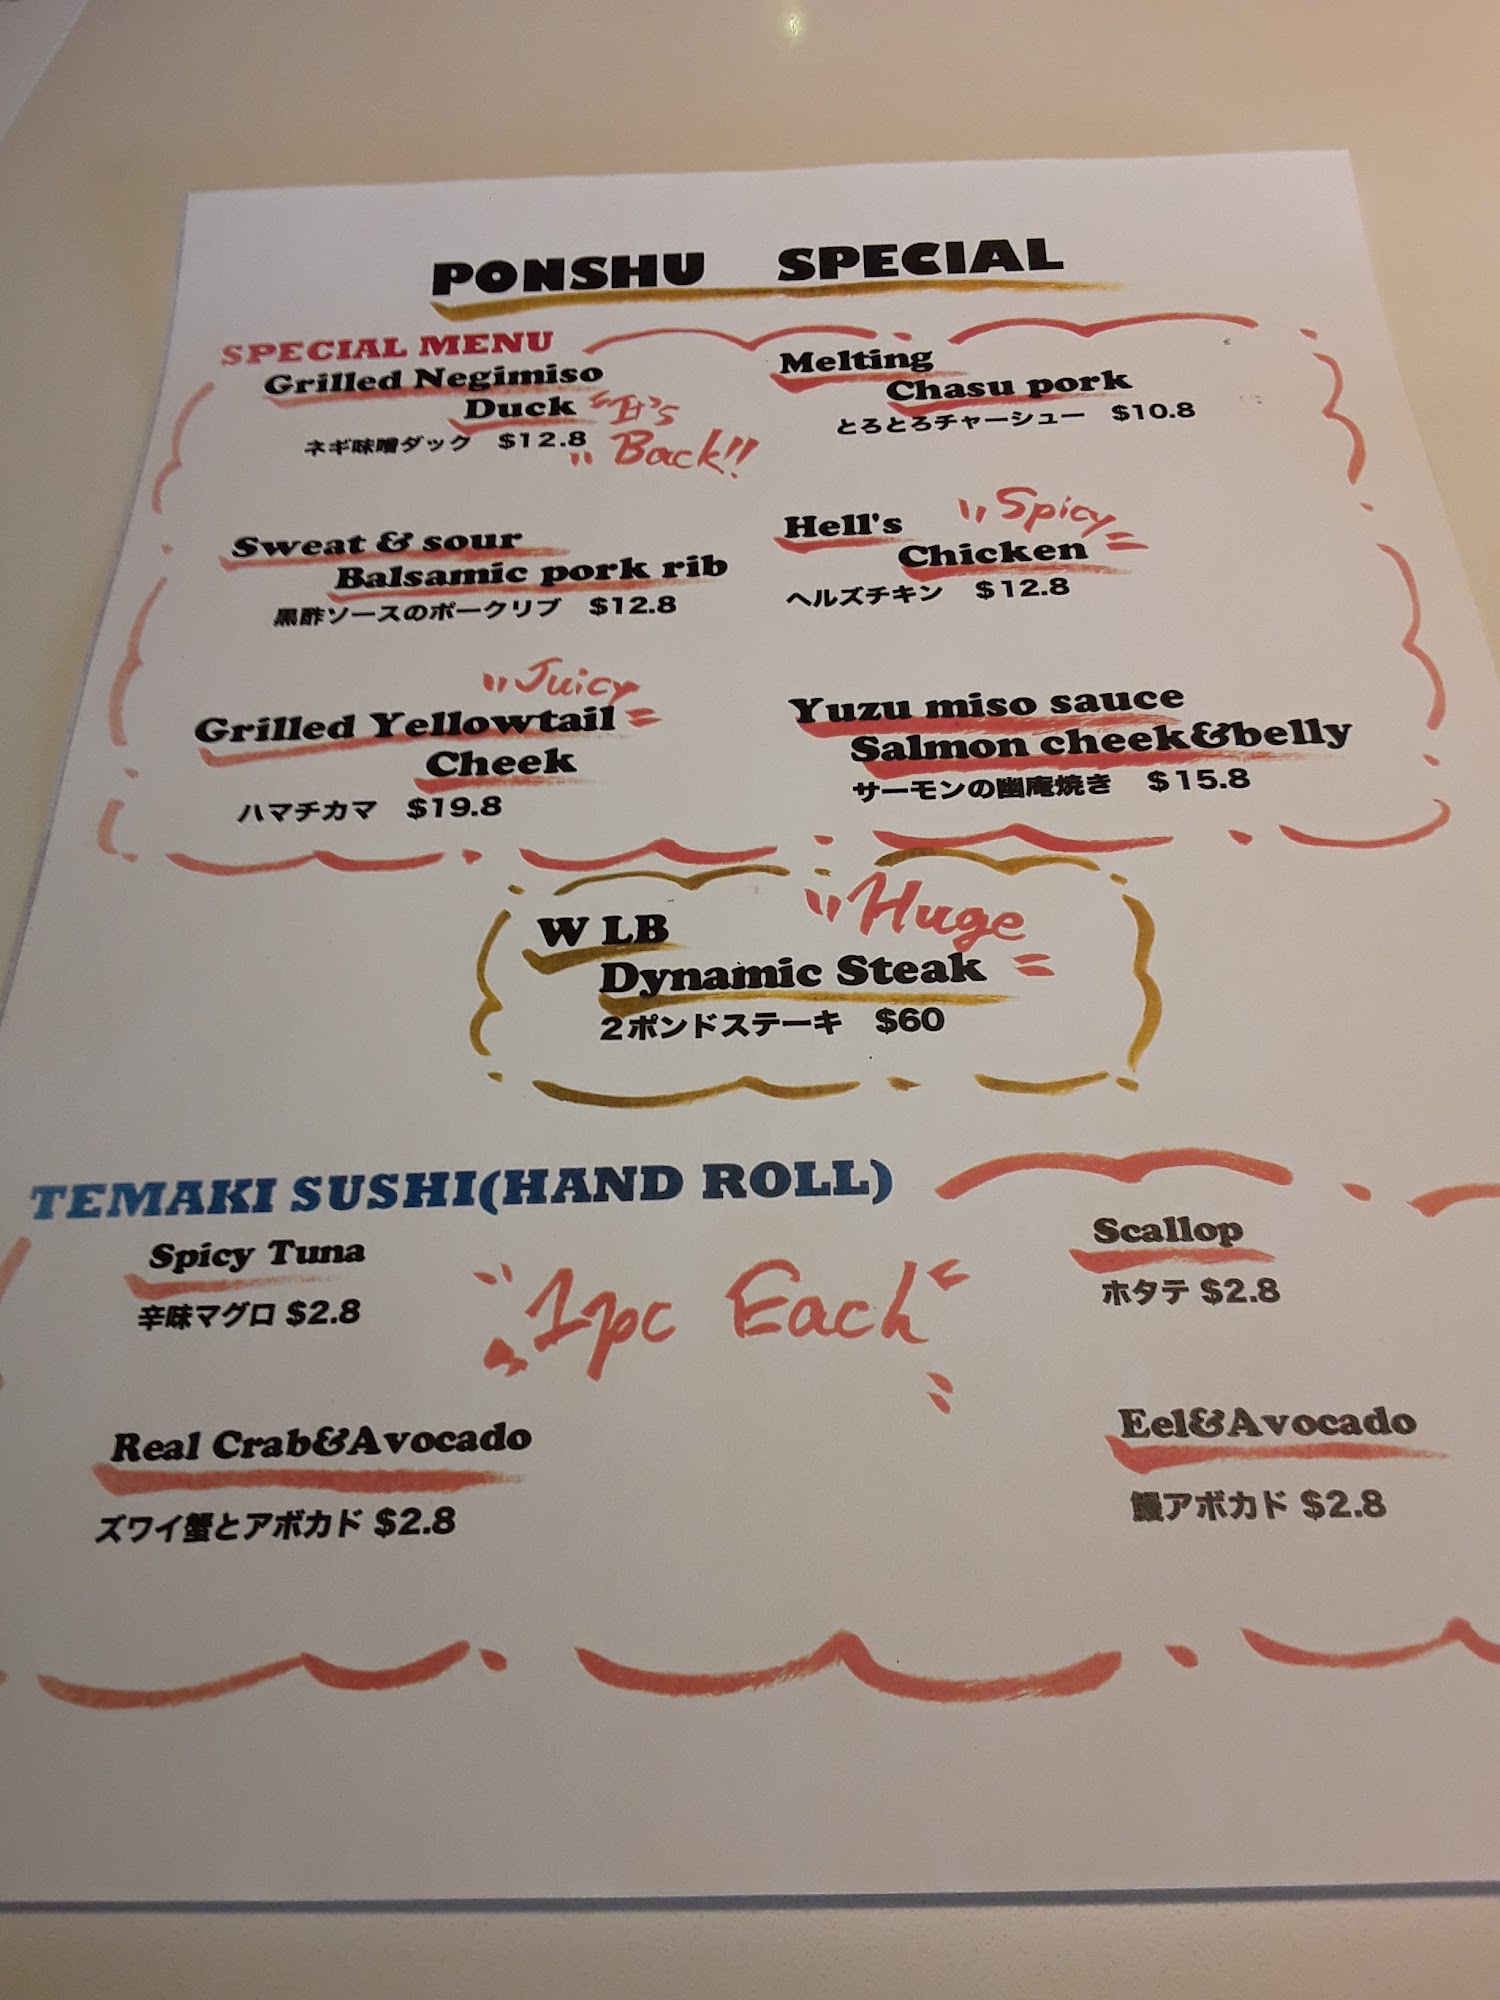 PONSHU SPECIAL
SPECIAL MENU
Grilled Negimiso
Duck
"It's
Back!!
ネギ味噌ダック $12.8
Melting
Chasu pork
とろとろチャーシュー $10.8
Sweat & sour
Balsamic pork rib
黒酢ソースのポークリブ $12.8
Spicy
Hell's
Chicken
ヘルズチキン $12.8
Juicy
Grilled Yellowtail
Cheek
ハマチカマ $19.8
Yuzu miso sauce
Salmon cheek&belly
サーモンの幽庵焼き $15.8
Huge
W LB
Dynamic Steak
2ポンドステーキ $60
TEMAKI SUSHI(HAND ROLL)
Spicy Tuna
辛味マグロ $2.8
1pc Each
Scallop
ホタテ $2.8
Real Crab&Avocado
ズワイ蟹とアボカド $2.8
Eel&Avocado
鰻アボカド $2.8